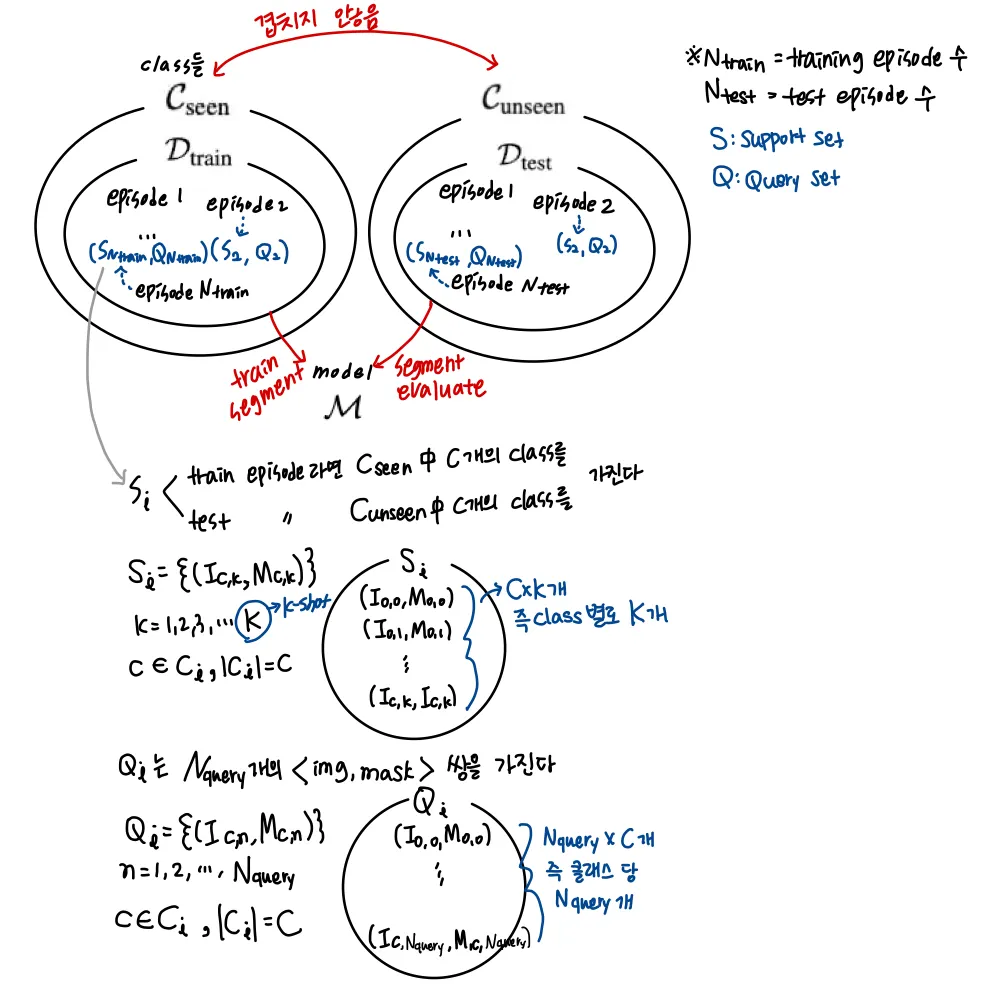 겹치지 않음
class들
C seen
C unseen
D train
D test
episode 1 episode2
...
(S Ntrain, Q Ntrain) (S2, Q2)
episode Ntrain
episode 1 episode 2
...
(S Ntest, Q Ntest) (S2, Q2)
episode Ntest
※Ntrain = training episode 수
Ntest = test episode 수
S: Support set
Q: Quory set
train segment
segment evaluate
model
M
Si < train episode라면 Cseen 中 C개의 class를 가진다
test 〃 Cunseen中 C개의 class를
Si = {(Ic,k, Mc,k)}
k=1,2,3,... K → k-shot
c ∈ Ci, |Ci|=C
Si
(I0,0, M0,0)
(I0,1, M0,1)
⋮
(Ic,k, Ic,k)
C×K개
즉 class 별로 K개
Qi는 Nquery개의 <img, mask> 쌍을 가진다
Qi = {(Ic,n, Mc,n)}
n=1, 2, ..., Nquery
c∈Ci, |Ci|=C
Qi
(I0,0, M0,0)
⋮
(Ic,Nquery, Mc,Nquery)
Nquery × C개
즉 클래스 당
Nquery 개